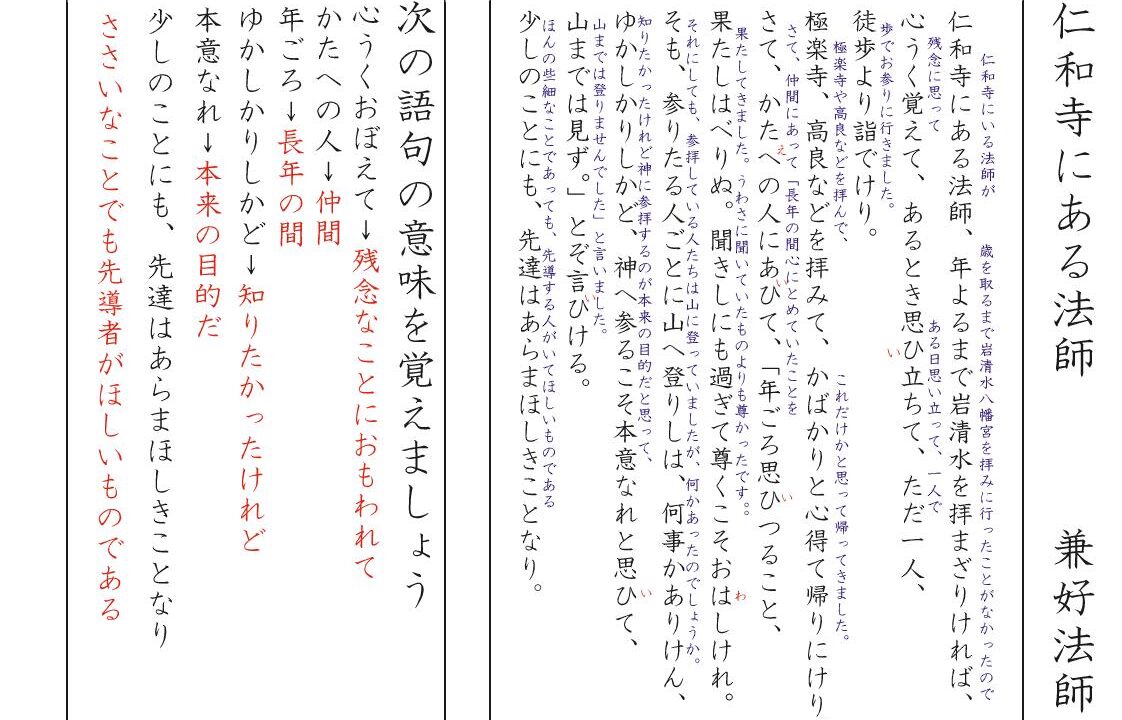 仁和寺にある法師　兼好法師
仁和寺にいる法師が　歳を取るまで岩清水八幡宮を拝みに行ったことがなかったので
仁和寺にある法師、年よるまで岩清水を拝まざりければ、
残念に思って　ある日思い立って、一人で
心うく覚えて、あるとき思ひ立ちて、ただ一人、
い
歩でお参りに行きました。
徒歩より詣でけり。
極楽寺や高良などを拝んで、　これだけかと思って帰ってきました。
極楽寺、高良などを拝みて、かばかりと心得て帰りにけり
さて、仲間にあって「長年の間心にとめていたことを
さて、かたへの人にあひて、「年ごろ思ひつること、
え　い　い
果たしてきました。うわさに聞いていたものよりも尊かったです。。
果たしはべりぬ。聞きしにも過ぎて尊くこそおはしけれ。
わ
それにしても、参拝している人たちは山に登っていましたが、何かあったのでしょうか。
そも、参りたる人ごとに山へ登りしは、何事かありけん、
知りたかったけれど神に参拝するのが本来の目的だと思って、
ゆかしかりしかど、神へ参るこそ本意なれと思ひて、
い
山までは登りませんでした」と言いました。
山までは見ず。」とぞ言ひける。
い
ほんの些細なことであっても、先導する人がいてほしいものである
少しのことにも、先達はあらまほしきことなり。
次の語句の意味を覚えましょう
心うくおぼえて→残念なことにおもわれて
かたへの人→仲間
年ごろ→長年の間
ゆかしかりしかど→知りたかったけれど
本意なれ→本来の目的だ
少しのことにも、先達はあらまほしきことなり
ささいなことでも先導者がほしいものである